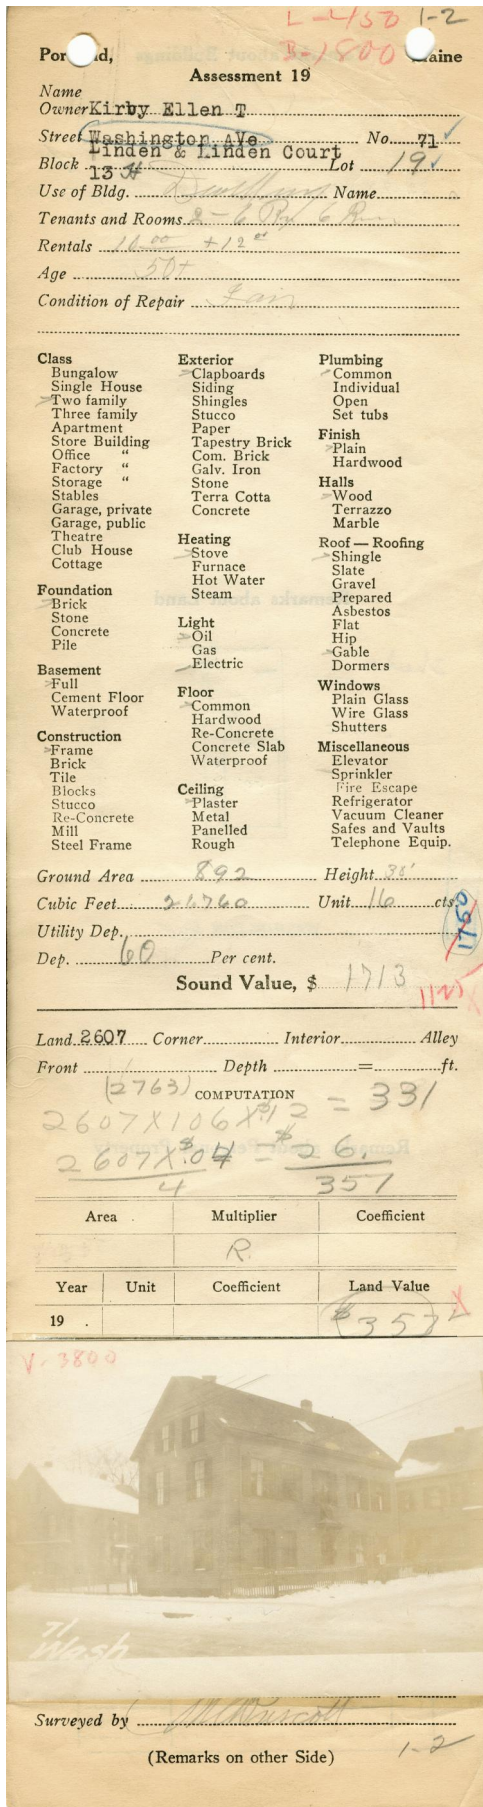 L-450 1-2
B-1800
Por nd, Maine
Assessment 19
Name
Owner Kirby Ellen T
Street Washington AVe No. 71
Linden & Linden Court
Block 13 H Lot 19
Use of Bldg. Dwelling Name
Tenants and Rooms 2-6 Rm 6 Rm
Rentals 10.00 +12.00
Age 50+
Condition of Repair Fair
Class
Bungalow
Single House
Two family
Three family
Apartment
Store Building
Office "
Factory "
Storage "
Stables
Garage, private
Garage, public
Theatre
Club House
Cottage
Foundation
Brick
Stone
Concrete
Pile
Basement
Full
Cement Floor
Waterproof
Construction
Frame
Brick
Tile
Blocks
Stucco
Re-Concrete
Mill
Steel Frame
Exterior
Clapboards
Siding
Shingles
Stucco
Paper
Tapestry Brick
Com. Brick
Galv. Iron
Stone
Terra Cotta
Concrete
Heating
Stove
Furnace
Hot Water
Steam
Light
Oil
Gas
Electric
Floor
Common
Hardwood
Re-Concrete
Concrete Slab
Waterproof
Ceiling
Plaster
Metal
Panelled
Rough
Plumbing
Common
Individual
Open
Set tubs
Finish
Plain
Hardwood
Halls
Wood
Terrazzo
Marble
Roof — Roofing
Shingle
Slate
Gravel
Prepared
Asbestos
Flat
Hip
Gable
Dormers
Windows
Plain Glass
Wire Glass
Shutters
Miscellaneous
Elevator
Sprinkler
Fire Escape
Refrigerator
Vacuum Cleaner
Safes and Vaults
Telephone Equip.
Ground Area 892 Height 30'
Cubic Feet 26760 Unit 16 cts.
1750
Utility Dep.
Dep. 60 Per cent.
Sound Value, $ 1713
Land 2607 Corner Interior Alley
Front Depth = ft.
(2763) COMPUTATION
2607 X 106 X $.12 = 331
2607 X $.04 = $26
4 357
Area Multiplier Coefficient
R
Year Unit Coefficient Land Value
19 . $357
V-3800
71
Wash
Surveyed by
(Remarks on other Side)
1-2